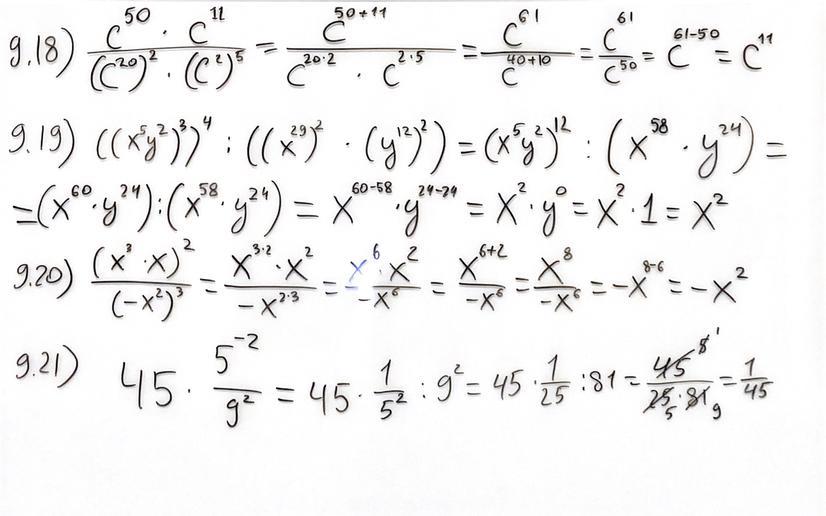 9.18) (c^50 · c^11)/((c^20)^2 · (c^2)^5) = c^(50+11)/(c^(20·2) · c^(2·5)) = c^61/c^(40+10) = c^61/c^50 = c^(61-50) = c^11
9.19) ((x^5y^2)^3)^4 : ((x^29)^2 · (y^12)^2) = (x^5y^2)^12 : (x^58 · y^24) =
=(x^60 · y^24):(x^58 · y^24) = x^(60-58) · y^(24-24) = x^2 · y^0 = x^2 · 1 = x^2
9.20) (x^3 · x)^2/(-x^2)^3 = (x^(3·2) · x^2)/(-x^(2·3)) = (x^6 · x^2)/(-x^6) = x^(6+2)/(-x^6) = x^8/(-x^6) = -x^(8-6) = -x^2
9.21) 45 · 5^(-2)/9^2 = 45 · 1/5^2 : 9^2 = 45 · 1/25 : 81 = 45/(25 · 81) = 1/45